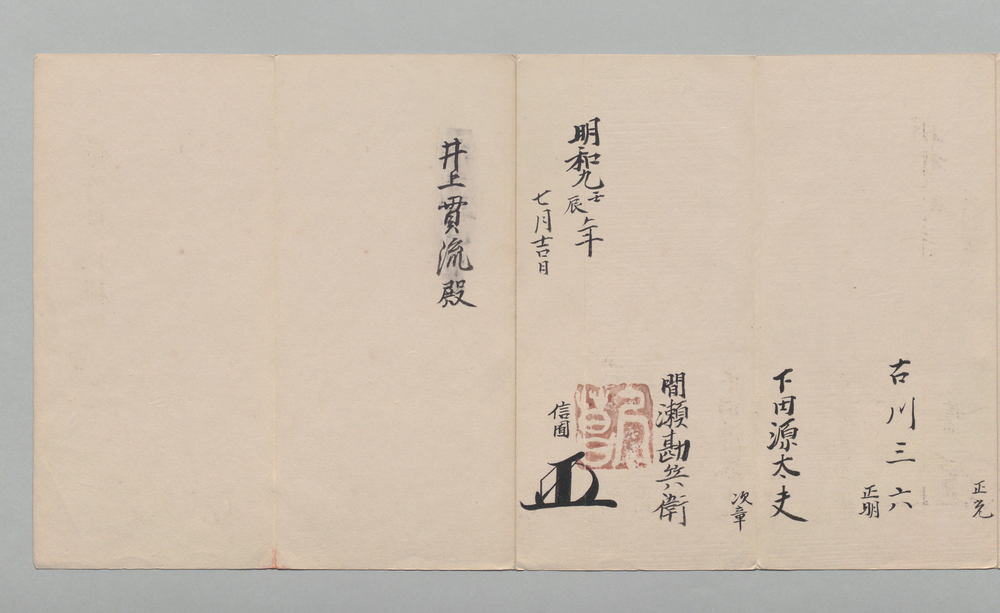 正充
古川三六
正明
下田源太夫
次章
間瀬勘兵衛
信圃
明和九壬辰年
七月吉日
井上貫流殿